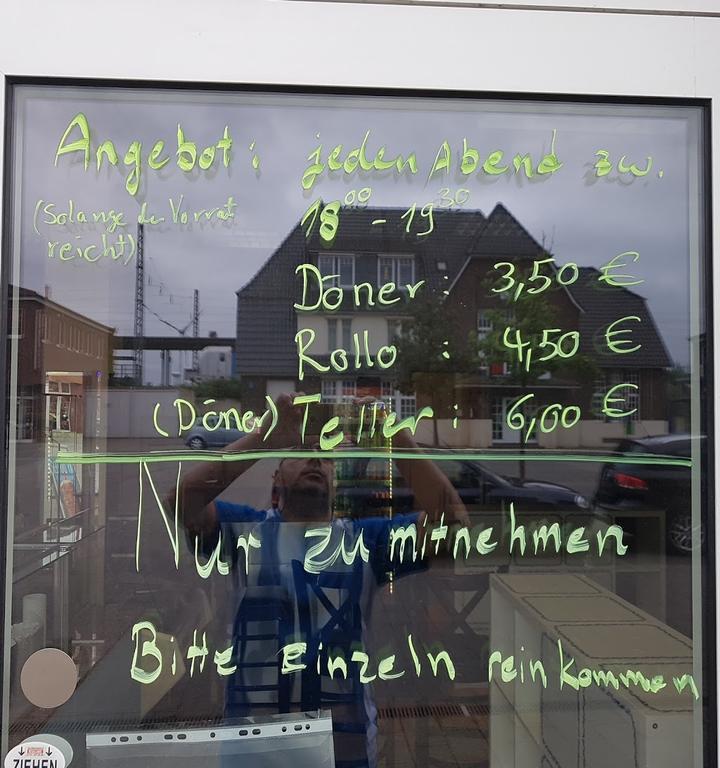 Angebot: jeden Abend zw.
(Solange de Vorrat reicht)
18⁰⁰ - 19³⁰
Döner: 3,50 €
Rollo : 4,50 €
(Döner) Teller: 6,00 €
Nur zu mitnehmen
Bitte einzeln rein kommen
ZIEHEN